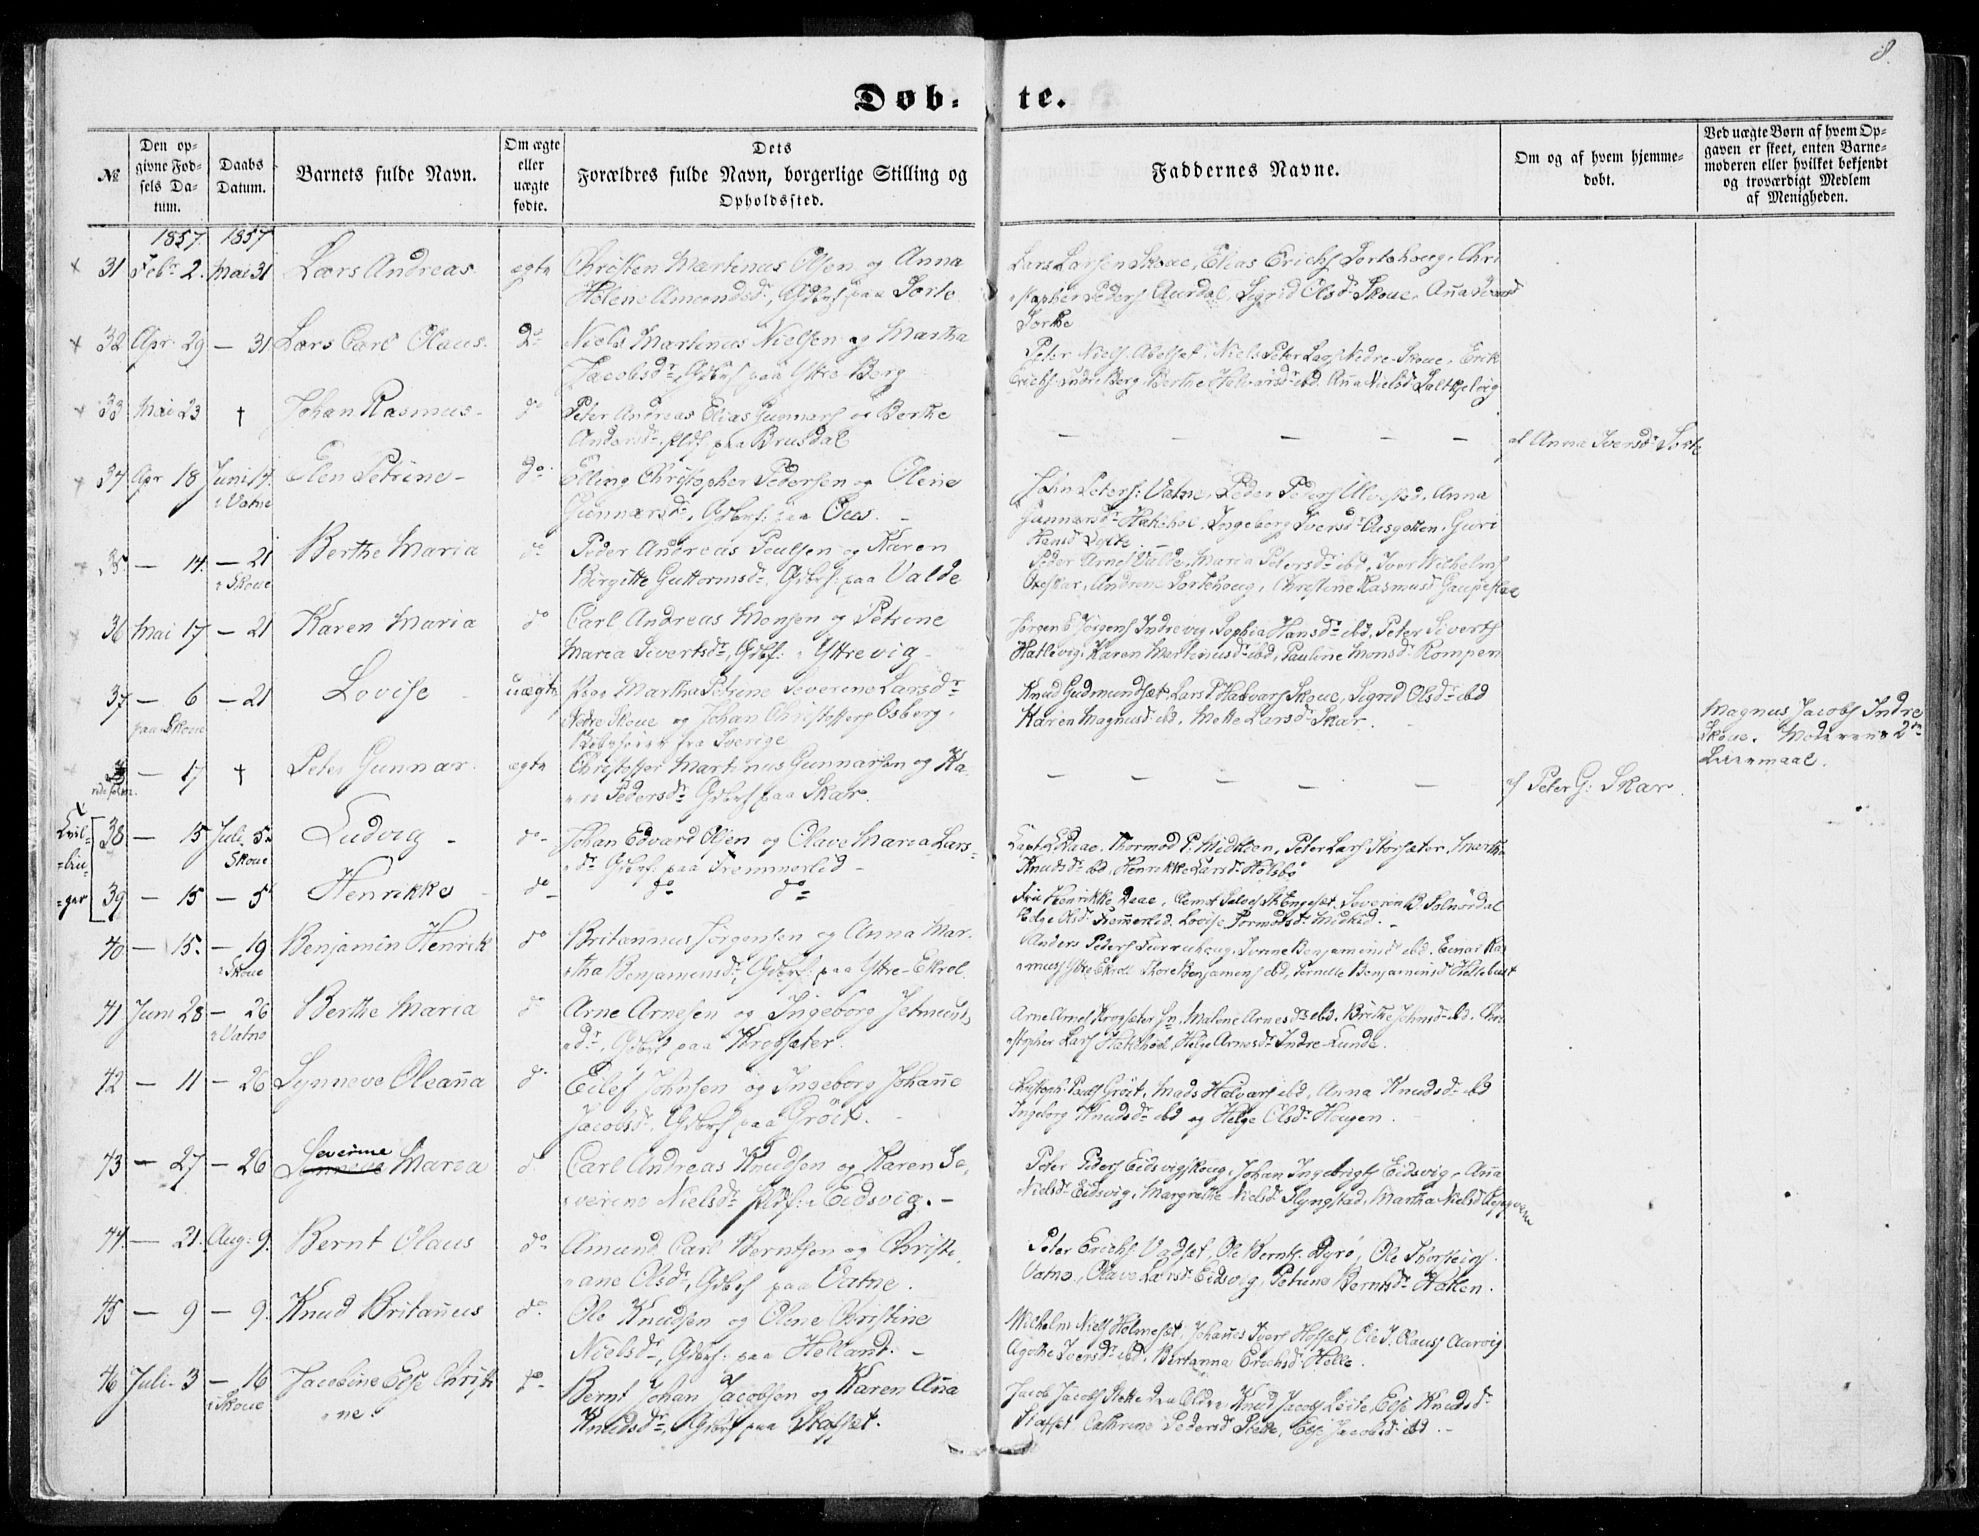 8.
Døb- te.
№
Den opgivne Fødsels Datum.
Daabs Datum.
Barnets fulde Navn.
Om ægte eller uægte fødte.
Dets Forældres fulde Navn, borgerlige Stilling og Opholdssted.
Faddernes Navne.
Om og af hvem hjemmedøbt.
Ved uægte Børn af hvem Opgaven er skeet, enten Barnemoderen eller hvilket bekjendt og troværdigt Medlem af Menigheden.
1857 1857
31 Febr 2. Mai 31 Lars Andreas ægte Christen Martinus Olsen og Anna
Helene Amundsdr, Gdbrf paa Sorte
Lars Larsen Skoue, Elias Erichs Sortehoug, Chri
stopher Peders Aurdal, Sigrid Olsdr Skoue, Anna
Sorthe
32 Apr 29 — 31 Lars Carl Olaus do Niels Martinus Nielsen og Martha
Jacobsdr, Gdbrf paa Ytre Berg
Peter Niels Abelset, Niels Peter Lars Nedre-Skoue, Erik
Erichs Indre Berg, Berthe Halvarsdr ibd. Anna Nielsd
33 Mai 23 † Johan Rasmus do Peter Andreas Elias Gunnars og Berthe
Andersdr, paa Brusdal
— — — — — af Anna Iversdr Sorte
34 Apr 18 Juni 14 Elen Petrine do Elling Christopher Pedersen og Oline
i Vatne
Gunnarsdr, Gdbrf: paa Oues.
John Peters: Vatne, Peder Peders Ulvested, Anna
Gunnarsdr Hakehol, Ingeborg Iversdr, Guri
35 — 14 — 21 Berthe Maria do Peder Andreas Poulsen og Karen
i Skoue
Birgitte Guttormsdr, Gdbrf: paa Valde
Peder Arnes Valde, Maria Petersdr ibd, Iver Wilhelms
Andrene Sortehoug, Christine Rasmusd
36 Mai 17 — 21 Karen Maria do Carl Andreas Monsen og Petrine
Maria Sivertsdr, Gdbf: i Yttrevig
Jørgen E Jørgens Indrevig, Sophia Hansdr ibd, Peter Siverts
Hatlevig, Karen Martinusdr ibd, Pauline Monsd: Rompen
37 — 6 — 21 Lovise uægte Pige Martha Petrine Severine Larsdr
paa Skoue
Nedre Skoue og Johan Christoffers Osberg.
fra Sverige
Knud Gudmundsæt, Lars P Halvars Skoue, Sigrid Olsdr ibd
Karen Magnusd ibd, Mette Larsdr Skar.
Magnus Jacobs Indre
Skoue. Moderens 2det
Leiermaal.
— 17 † Peter Gunnar ægte Christoffer Martinus Gunnarsen og Ka
ren Pedersdr Gdbrf paa Skar.
— — — — af Peter G: Skar.
Tvil-
lin-
ger
38 — 15 Juli 5 Ludvig do Johan Edvard Olsen og Olave Maria Lars
Skoue
dr Gdbrf: paa Fremmerlid
Capt L. Daae, Thormod P. Midtlien, Peter Lars Storsæter, Marthe
Knudsdr ibd, Henrikke Larsdr Holsbø
39 — 15 — 5 Henrikke do do do
Fru Henrikke Daae, Severin B. Solnørdal
Olsd: Fremmerlid, Lovise Tormodsd: Midtlid.
40 — 15 — 19 Benjamin Henrik do Britannus Jørgensen og Anna Mar
i Skoue
tha Benjaminsdr, Gdbrf: paa Yttre-Ekrol.
Anders Peders Furrehoug, Benjaminsd ibd, Einar Ra
smus Yttre Ekroll, Thore Benjamins ibd, Pernille Benjaminsd
41 Juni 28 — 26 Berthe Maria do Arne Arnesen og Ingeborg Jetmunds
i Vatne
dr, Gdbrf paa Krogsæter.
Arne Arnes Krogsæter, Malene Arnesdr ibd, Britthe Johnsd ibd. Chri
stopher Lars Hakehol, Helge Arnesdr Indre Lunde.
42 — 11 — 26 Synneve Oleana do Eilef Johnsen og Ingeborg Johanne
Jacobsdr, Gdbrf paa Grøit.
Christoph: Grøit, Mads Halvars ibd, Anna Knudsdr ibd
Ingeborg Knudsdr ibd og Helge Olsdr Hougen.
43 — 27 — 26 Severine Maria do Carl Andreas Knudsen og Karen Se
verine Nielsdr i Eidsvig.
Peter Peders Eidsvigskoug, Johan Ingebrigts Eidsvig, Anna
Nielsdr Eidsvig, Margrethe Nielsdr Slyngstad, Martha Nielsd
44 — 21 Aug: 9. Bernt Olaus do Amund Carl Berntsen og Christi
ane Olsdr, Gdbrf paa Vatne.
Peter Erichs Vadset, Ole Bernts. Dyrø, Ole Thorsteins
Vatne, Olave Larsd Eidsvig, Petrine Berntsdr Haken.
45 — 9 — 9. Knud Britannus do Ole Knudsen og Oline Christine
Nielsdr, Gdbrf: paa Helland.
Wilhelm Niels Holmeset, Johannes Ivers Hofset, Ole J. Olauss Aarvig
Agathe Iversdr ibd, Bertanna Erichsd Helle.
46 Juli 3 — 16 Jacobine Else Christi do Bernt Johan Jacobsen og Karen Anna
i Skoue
ne
Knudsdr, Gdbrf paa Stafset.
Jacob Jacobs Slette, Knud Jacobs Leite, Else Knudsdr
Stafset, Cathrine Pedersd Slette, Else Jacobsd ibd.